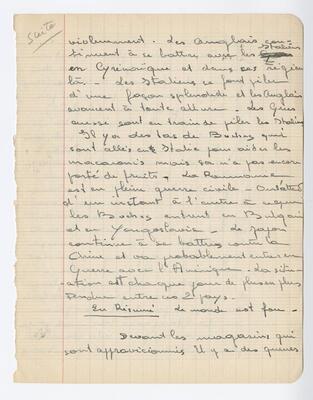 suite
violemment. Les Anglais con-
tinuent à se battre avec les Italiens
en Cyrénaïque et dans ces régions
là. Les Italiens se font piler
d'une façon splendide et les Anglais
avancent à toute allure. Les Grecs
aussi sont en train de piler les Italiens
Il y a des tas de Boches qui
sont allés en Italie pour aider les
macaronis mais ça n'a pas encore
porté de fruits. La Roumanie
est en pleine guerre civile - On s'attend
d'un instant à l'autre à ce que
les Boches entrent en Bulgarie
et en Yougoslavie - Le Japon
continue à se battre contre la
Chine et va probablement entrer en
Guerre avec l'Amérique. La situ-
ation est chaque jour de plus en plus
tendue entre ces 2 pays.
En Résumé le monde est fou.
Devant les magasins qui
sont approvisionnés Il y a des queues